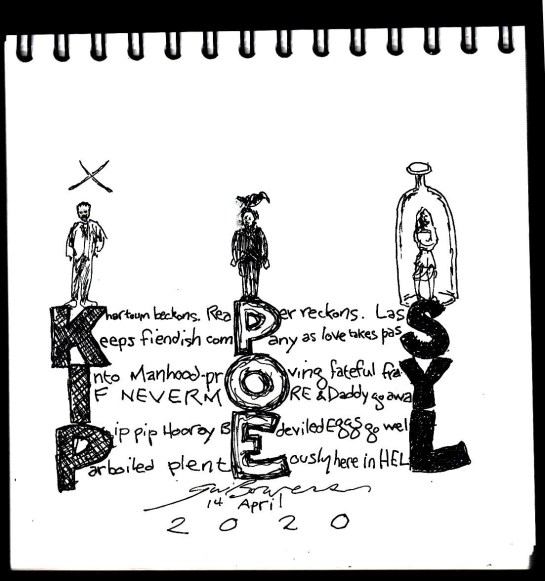 Khartoum beckons. ReaPer reckons. LasS
Keeps fiendish comPany as love takes pasS
Into Manhood-prOving fateful fraY
IF NEVERMORE & Daddy go awaY
Pip pip Hooray BEdeviled Eggs go welL
Parboiled plentEously here in HELL
14 April
2020